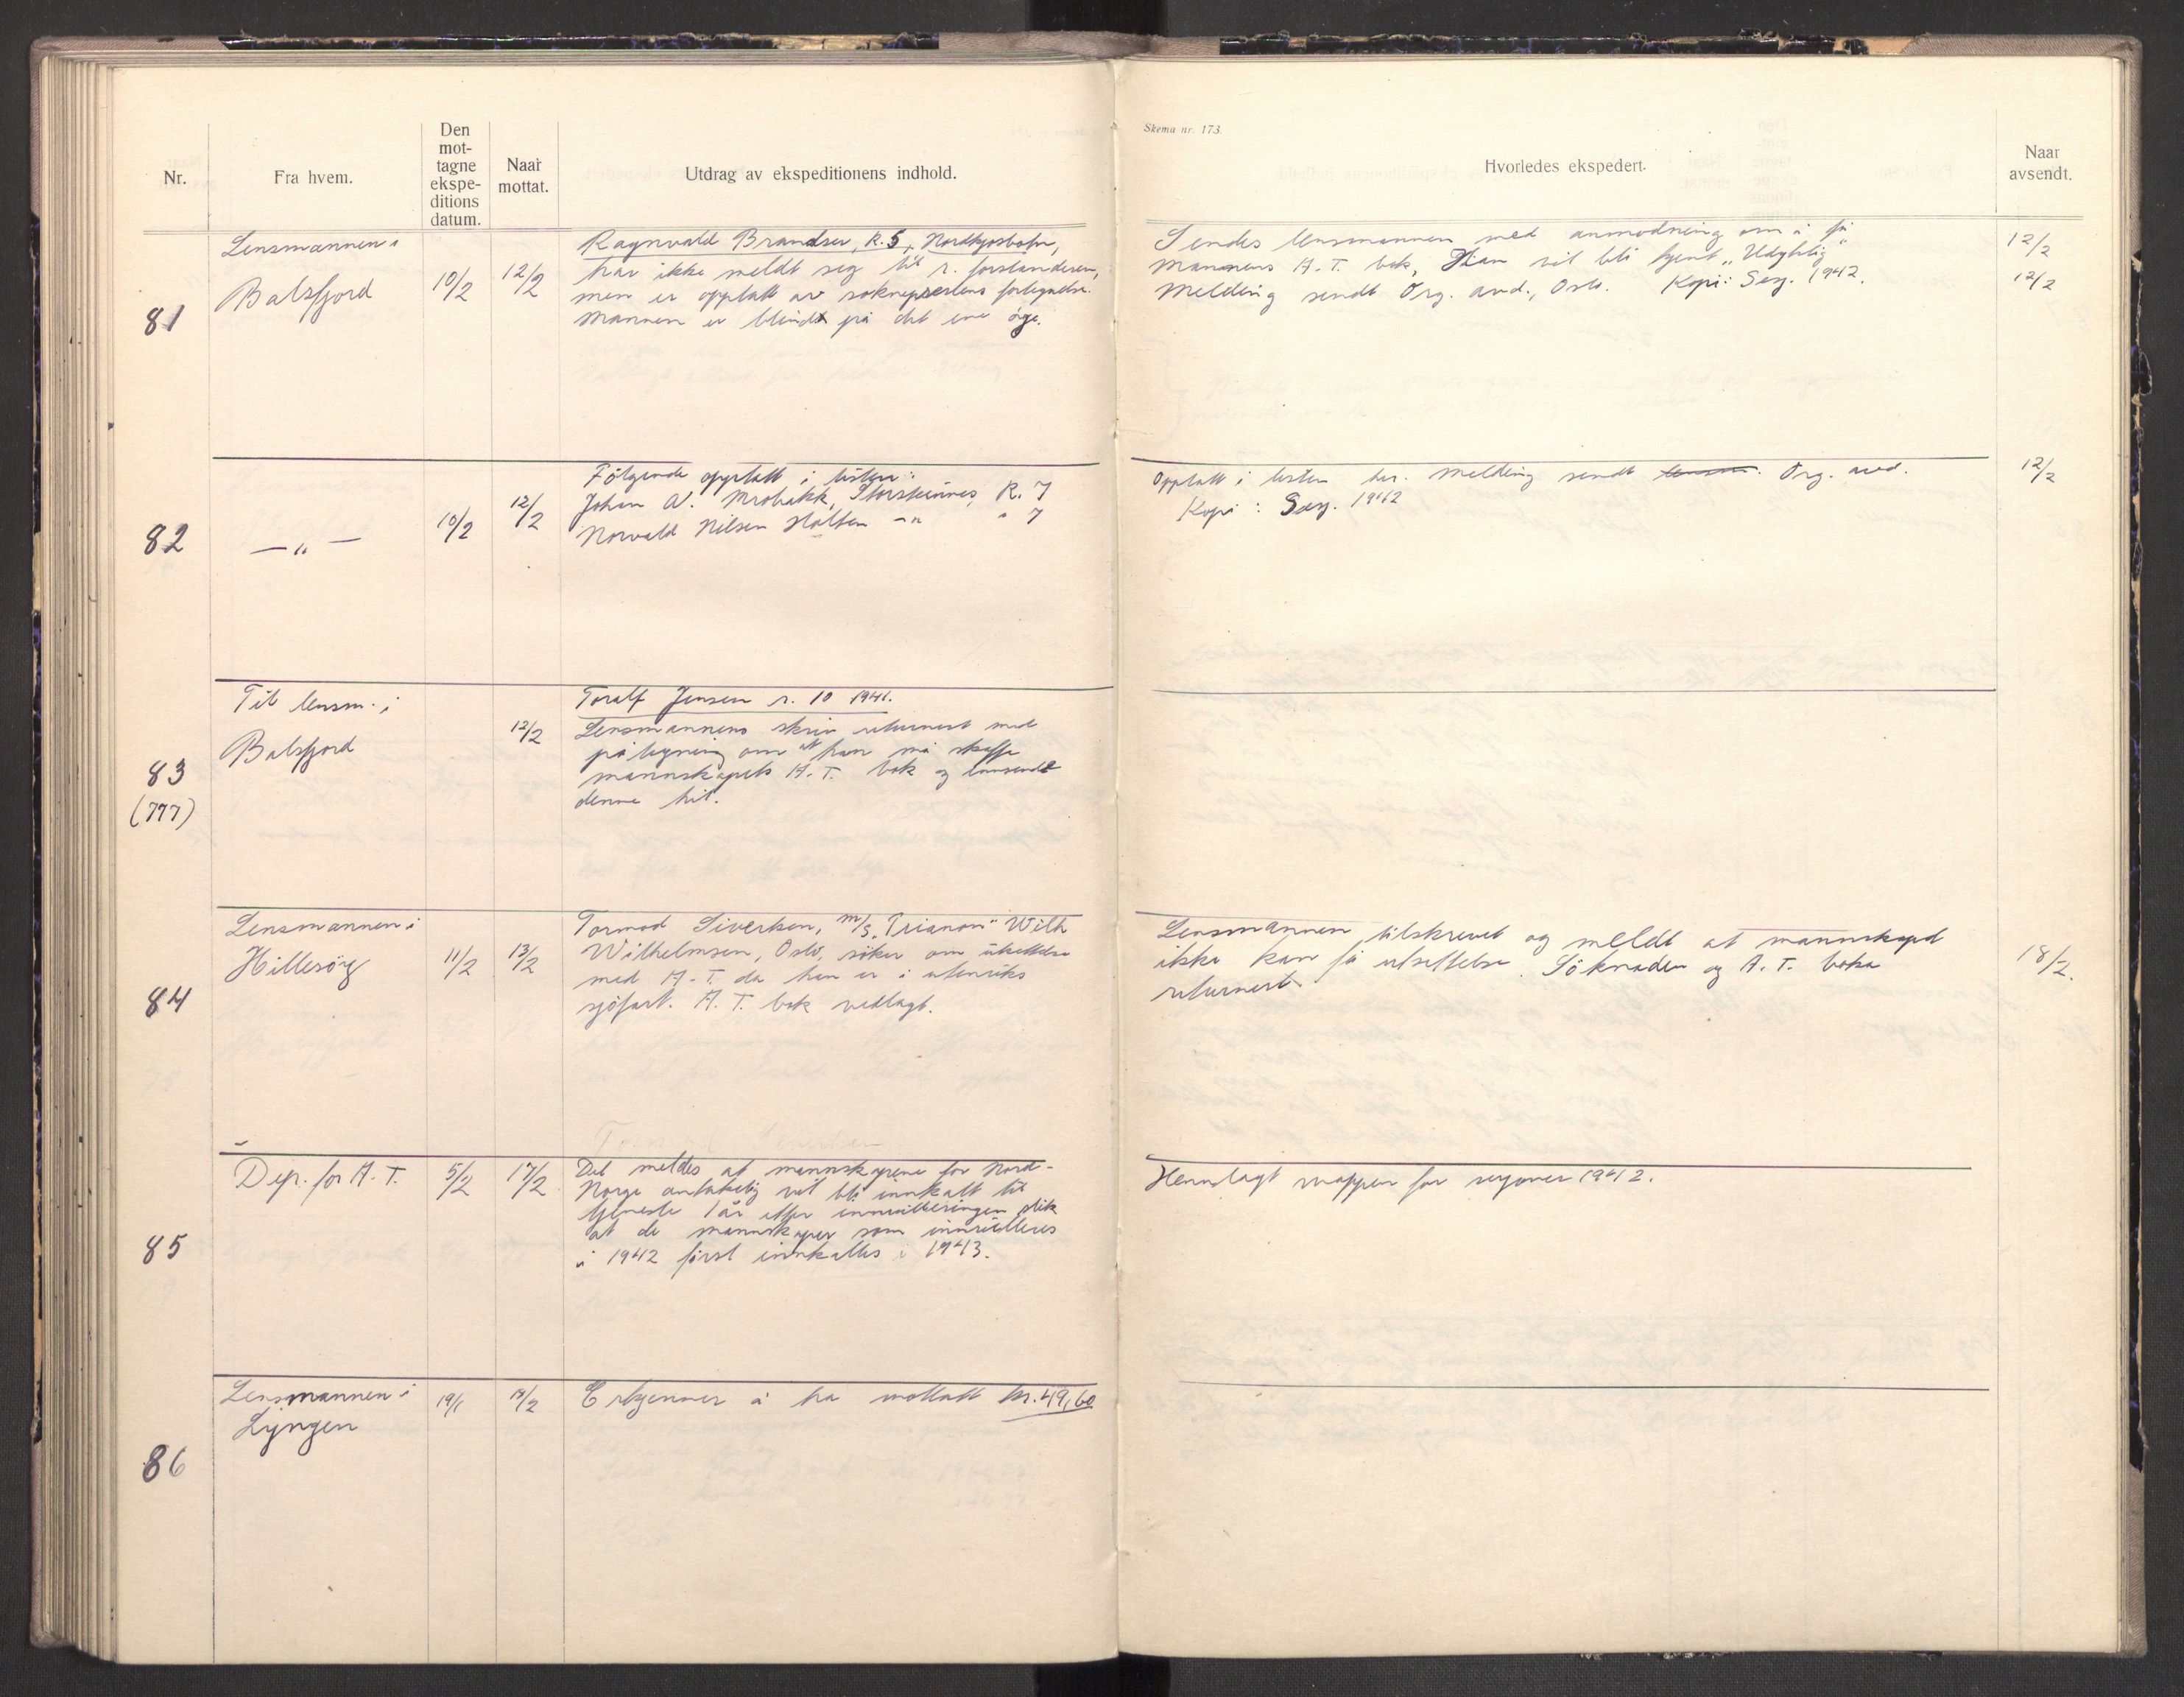 Nr.
Fra hvem.
Den
mot-
tagne
ekspe-
ditions
datum.
Naar
mottat.
Utdrag av ekspeditionens indhold.
Skema nr. 173.
Hvorledes ekspedert.
Naar
avsendt.
81
Lensmannen i
Balsfjord
10/2
12/2
Ragnvald Brandser, R. 5, Nordkjosbotn,
har ikke meldt seg til r. forstanderen,
men er opptatt av sokneprestens fortegnelse.
Mannen er blindt på det ene øye.
Sendes lensmannen med anmodning om å få
mannens A. T. bok, Han vil bli kjent „Udyktig"
Melding sendt Org. avd., Oslo. Kopi: Sesj. 1942.
12/2
12/2
82
— " —
10/2
12/2
Følgende opptatt i listen:
Johan A. Mrobakk, Storsteinnes, R. 7
Norvald Nilsen Holten —"— " 7
Opptatt i listen her. Melding sendt Org. avd.
Kopi: Sesj. 1942
12/2
83
(777)
Til lensm. i
Balsfjord
12/2
Toralf Jensen r. 10 1941.
Lensmannens skriv returnert med
påtegning om at han må skaffe
mannskapets A. T. bok og innsende
denne hit.
84
Lensmannen i
Hillesøy
11/2
13/2
Tormod Sivertsen, m/s „Trianon" Wilh
Wilhelmsen, Oslo, søker om utsettelse
med A. T. da han er i utenriks
sjøfart. A. T. bok vedlagt.
Lensmannen tilskrevet og meldt at mannskapet
ikke kan få utsettelse. Søknaden og A. T. boka
returnert.
18/2.
85
Dep. for A. T.
5/2
17/2
Det meldes at mannskapene for Nord-
Norge antakelig vil bli innkalt til
tjeneste 1 år etter innrulleringen slik
at de mannskaper som innrulleres
i 1942 først innkalles i 1943.
Henlagt mappen for sesjoner 1942.
86
Lensmannen i
Lyngen
19/1
Erkjenner å ha mottatt kr. 49,60